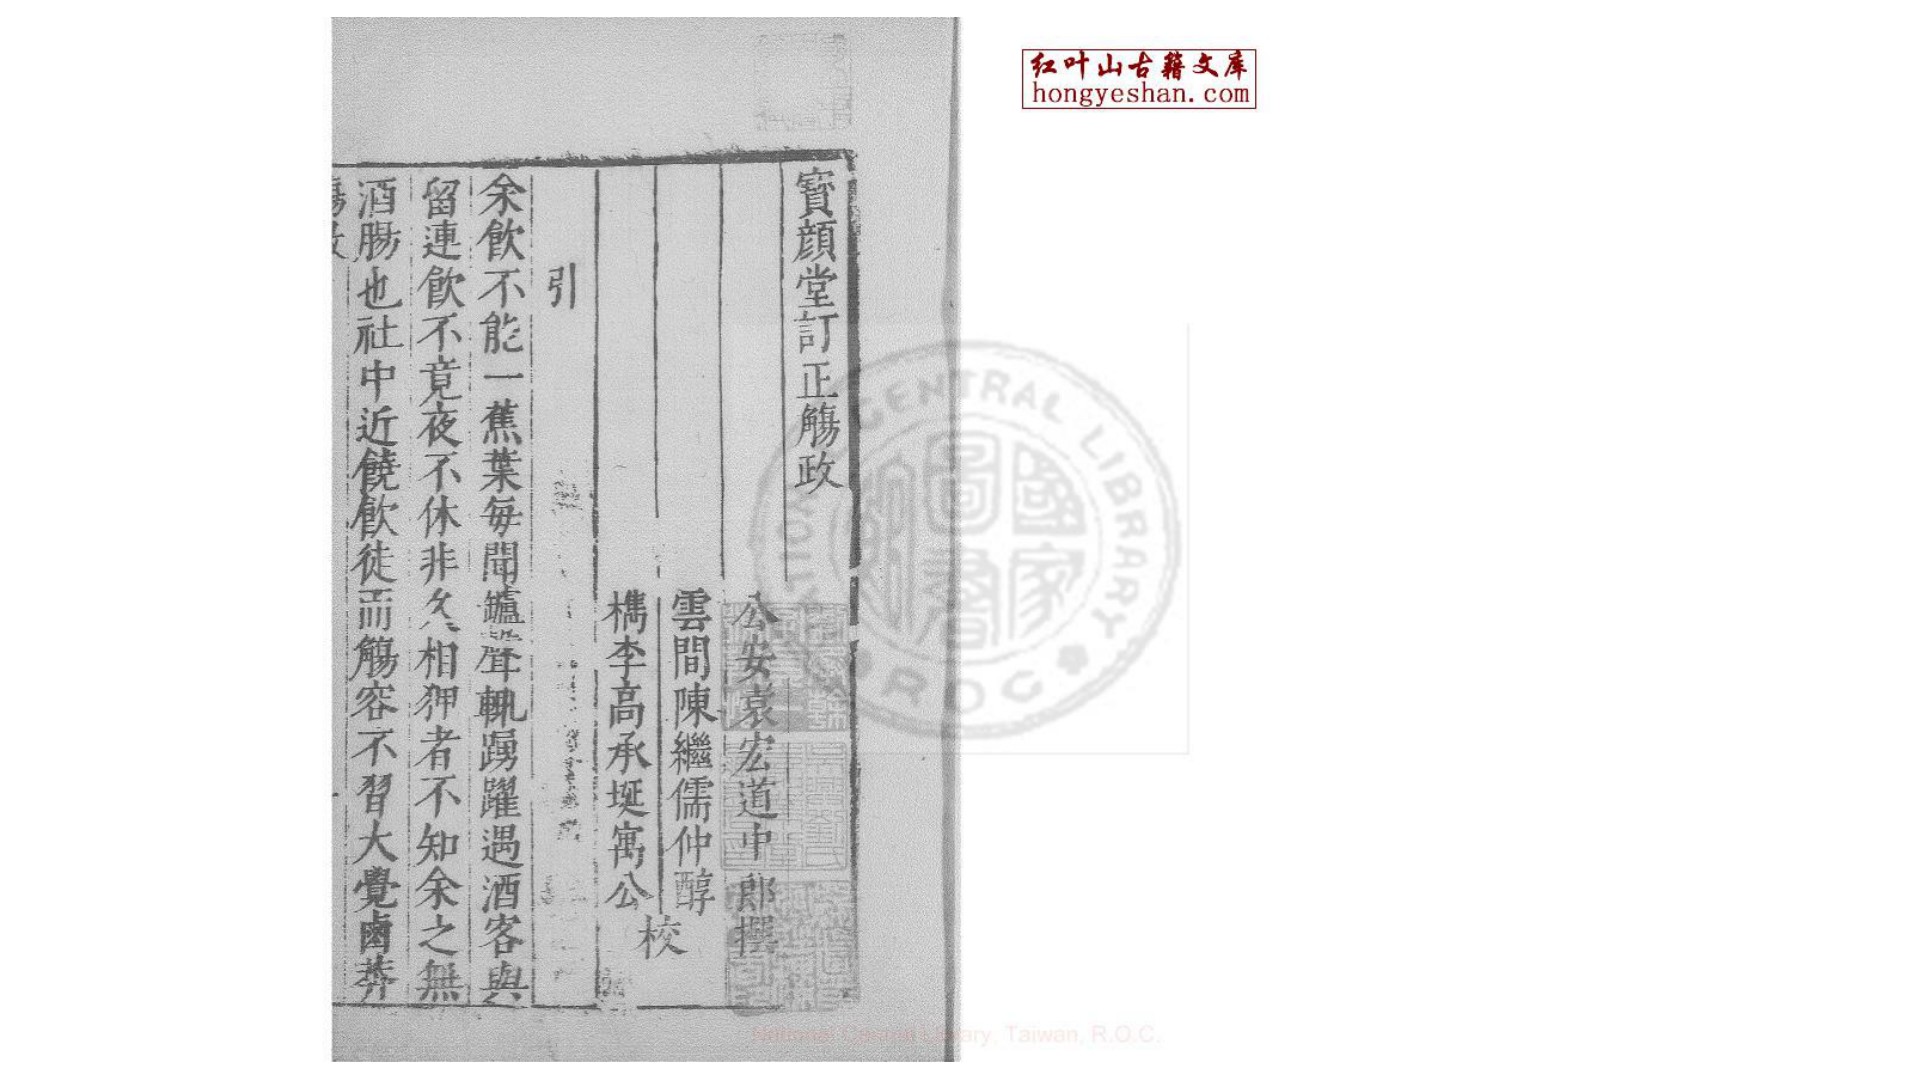 寶顏堂訂正觴政
公安袁宏道中郎撰
雲間陳繼儒仲醇
檇李高承埏寓公
校
引
余飮不能一蕉葉每聞鑪聲輒踴躍遇酒客與
留連飮不竟夜不休非久相狎者不知余之無
酒腸也社中近饒飮徒而觴容不習大覺鹵莽
红叶山古籍文库
hongyeshan.com
NATIONAL CENTRAL LIBRARY
R.O.C
國家圖書
National Central Library, Taiwan, R.O.C.